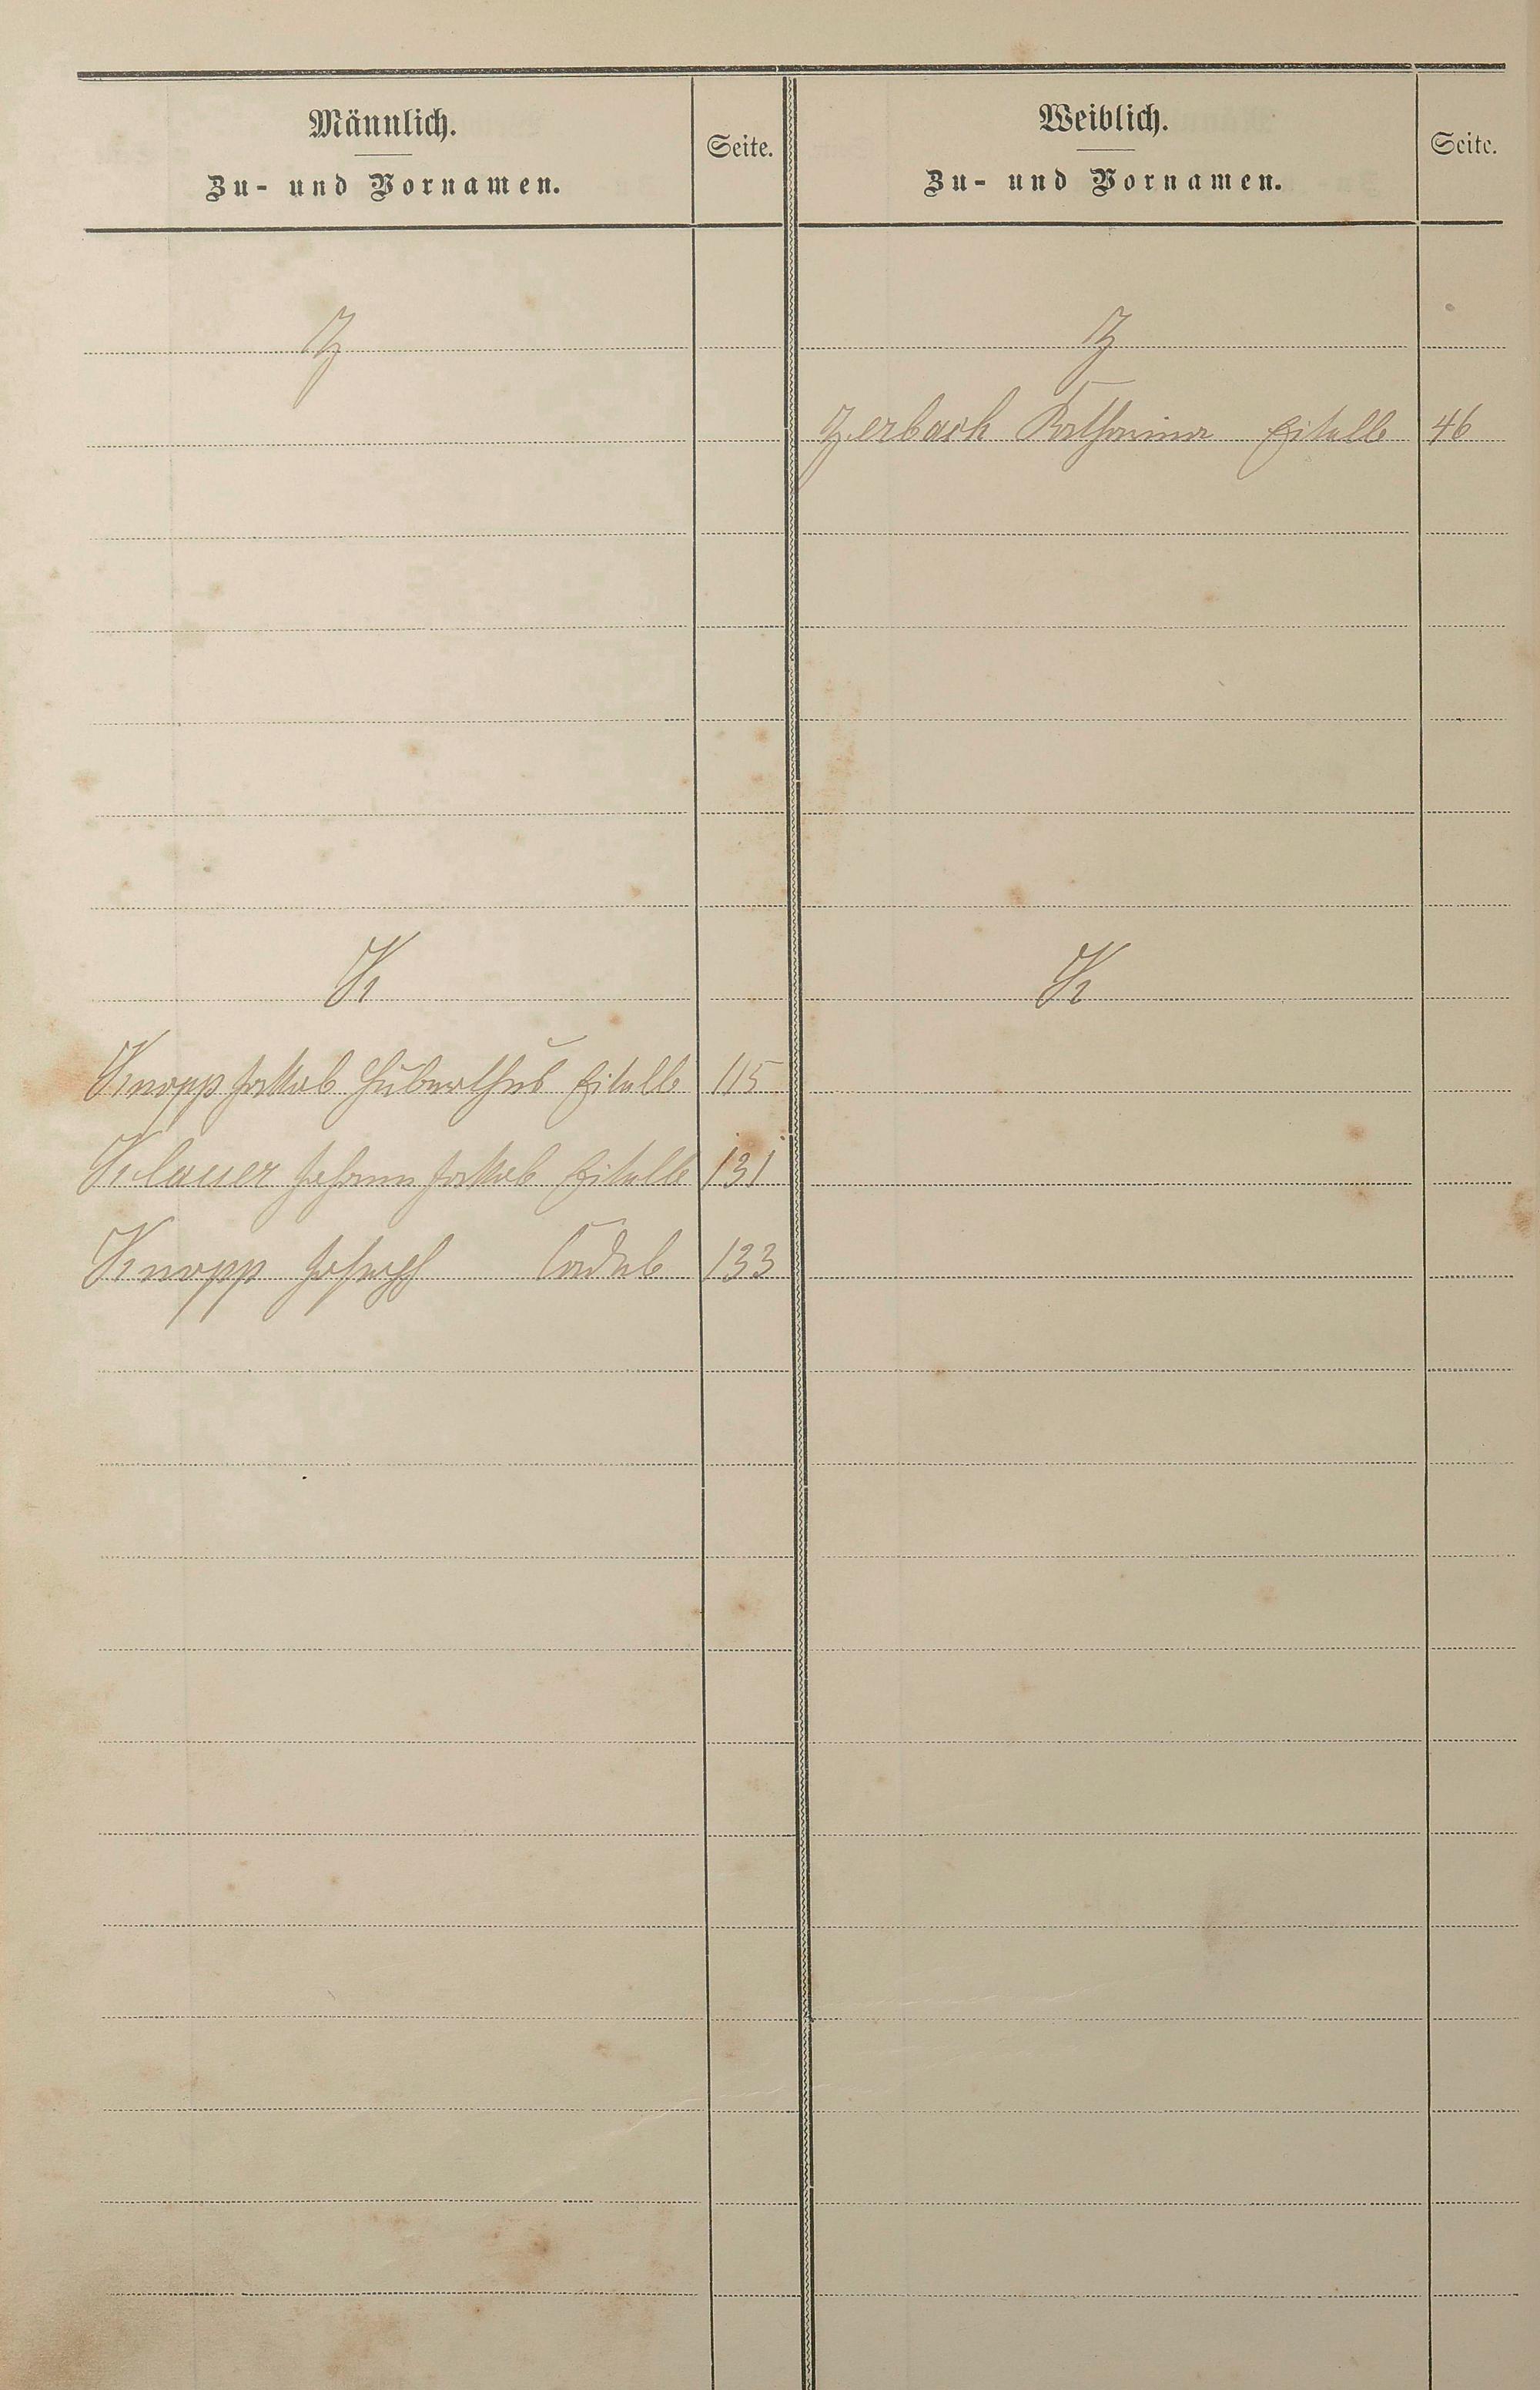 Männlich.
Zu- und Vornamen.
Seite.
Weiblich.
Zu- und Vornamen.
Seite.
Z
Z
Zerbach Katharina Fitalle 46
K
K
Knopp Jakob Huberthus Fitalle 115
Klauer Johann Jakob Fitalle 131
Knopp Joseph 133